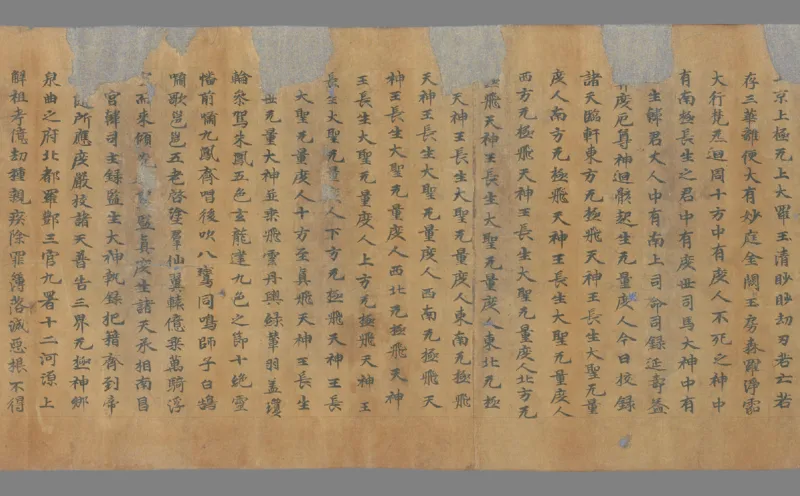 京上極无上大羅玉清眇眇劫刃若亡若
存三華離便大有妙庭金闕玉房森羅淨
大行梵炁迴周十方中有度人不死之神中
有南極長生之君中有度世司馬大神中有
生韓君大人中有南上司命司錄延壽益
度厄尊神迴骸起生无量度人今日校錄
諸天臨軒東方无極飛天神王長生大聖无量
度人南方无極飛天神王長生大聖无量度人
西方无極飛天神王長生大聖无量度人北方无
飛天神王長生大聖无量度人東北无極
天神王長生大聖无量度人東南无極飛
天神王長生大聖无量度人西南无極飛天
神王長生大聖无量度人西北无極飛天神
王長生大聖无量度人上方无極飛天神王
長生大聖无量度人下方无極飛天神王長
大聖无量度人十方至真飛天神王長生
世无量大神並乘飛雲丹輿綠輦羽蓋瓊
輪參駕朱鳳五色玄龍建九色之節十絕靈
幡前嘯九鳳齊唱後吹八鸞同鳴師子白鵠
嘯歌邕邕五老啓塗羣仙翼轅億乘萬騎浮
而來傾光監真度生諸天丞相南昌
宮韓司主錄監生大神執錄把籍齊到帝
所應度嚴校諸天普告三界无極神鄉
泉曲之府北都羅酆三官九署十二河源上
解祖考億劫種親疾除罪簿落滅惡根不得